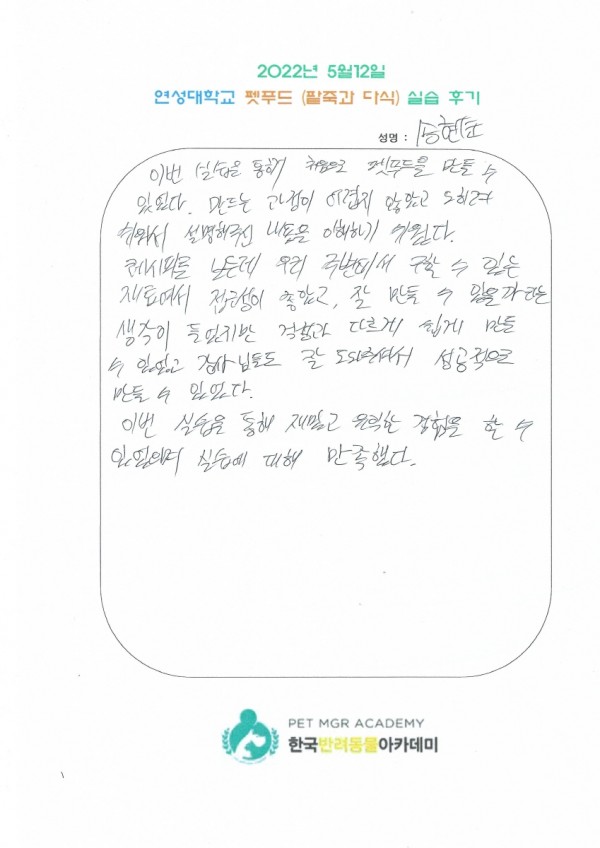 2022년 5월12일
연성대학교 펫푸드 (팥죽과 다식) 실습 후기
성명 : 송현근
이번 실습을 통해 처음으로 펫푸드를 만들 수
있었다. 만드는 과정이 어렵지 않았고
쉬워서 설명해주신 내용을 이해하기 쉬웠다.
레시피를 났는데 우리 주변에서 구할 수 있는
재료여서 접근성이 좋았고, 잘 만들 수 있을까라는
생각이 들었지만 걱정과 다르게 쉽게 만들
수 있었고 강사님들도 잘 도와주셔서 성공적으로
만들 수 있었다.
이번 실습을 통해 재밌고 유익한 경험을 할 수
있었으며 실습에 대해 만족했다.
PET MGR ACADEMY
한국반려동물아카데미